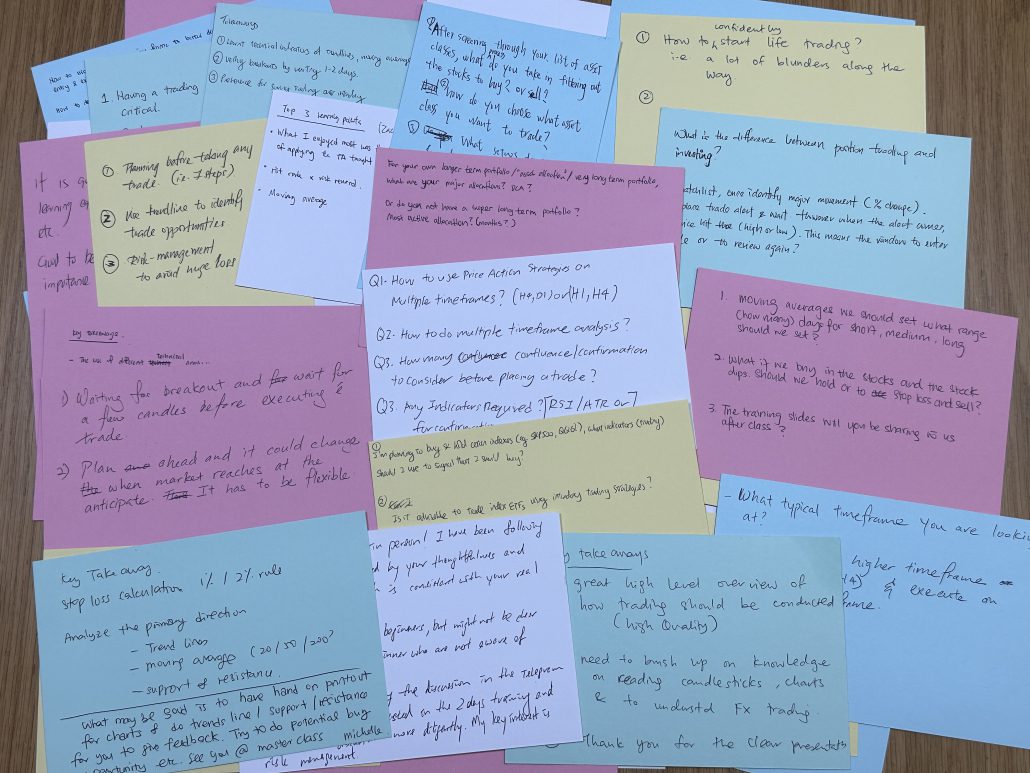 Takeaways
① Learnt technical indicators of trendlines, moving average
② Verify breakouts by waiting 1-2 days.
③
1. Having a trading
critical.
How to
entry &
② After screening through your list of asset
classes, what do you take in filtering out
the stocks to buy? or sell?
② How do you choose what asset
class you want to trade?
③ What
confidently
① How to start life trading?
i.e. a lot of blunders along the
way
②
Top 3 learning points
• What I enjoyed most was
of applying the TA taught
• Hit rate & risk reward
• Moving average
① Planning before taking any
trade. (i.e. 7 steps).
② Use trendline to identify
trade opportunities
③ Risk-management
to avoid huge loss
it is
learning
etc.
Good to be
importance
For your own longer term portfolio / "asset allocation" / very long term portfolio,
what are your major allocation? DCA?
Or do you not have a super long term portfolio?
Most active allocation? (months?)
What is the difference between position trading and
investing?
watchlist, once identify major movement (% change).
place trade alert & wait. However when the alert
hit (high or low). This means the window to enter
or to review again?
Q1. How to use Price Action Strategies on
Multiple timeframes? (H4, D1) or (H1, H4)
Q2. How to do multiple timeframe analysis?
Q3. How many confluence/confirmation
to consider before placing a trade?
Q3. Any Indicators Required? [RSI / ATR or]
for
1. Moving averages we should set what range
(how many) days for short, medium, long
should we set?
2. What if we buy in the stocks and the stock
dips. Should we hold or to stop loss and sell?
3. The training slides will you be sharing to us
after class?
Key takeaways.
- The use of different technical
1) Waiting for breakout and wait for
a few candles before executing
trade
2) Plan ahead and it could change
when market reaches at the
anticipate. It has to be flexible
① I'm planning to buy & hold certain indexes (eg S&P500, QQQ), what indicators (mainly)
should I use to signal that I should buy?
② Is it advisable to trade index ETFs using trading strategies?
- What typical timeframe you are looking
at?
higher timeframe
& execute on
Key Take away.
stop loss calculation 1% / 2% rule
Analyze the primary direction
- Trend lines
- moving average (20/50/200?
- support & resistance.
What may be good is to have hand on printout
for charts & do trends line / support / resistance
for you to give feedback. Try to do potential buy
opportunity etc. See you @ masterclass michelle
in person! I have been following
by your thoughtfulness and
is consistent with your real
beginners, but might not be
who are not aware of
the discussion in the Telegram
on the 2 days training and
more diligently. My key interest is
risk management.
take aways
great high level overview of
how trading should be conducted
(High Quality)
need to brush up on knowledge
on reading candlesticks, charts
& to understd FX trading.
Thank you for the clear